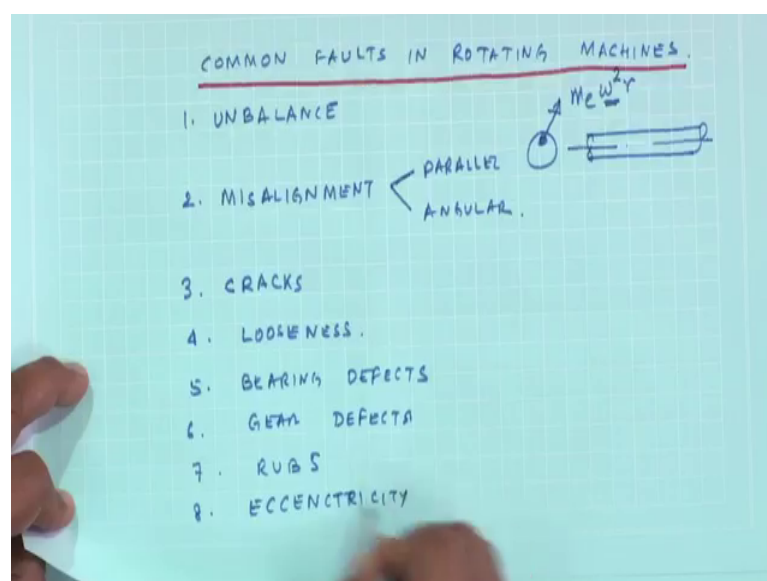 COMMON FAULTS IN ROTATING MACHINES.
1. UNBALANCE
meω²r
2. MISALIGNMENT
PARALLEL
ANGULAR.
3. CRACKS
4. LOOSENESS.
5. BEARING DEFECTS
6. GEAR DEFECTS
7. RUBS
8. ECCENCTRICITY